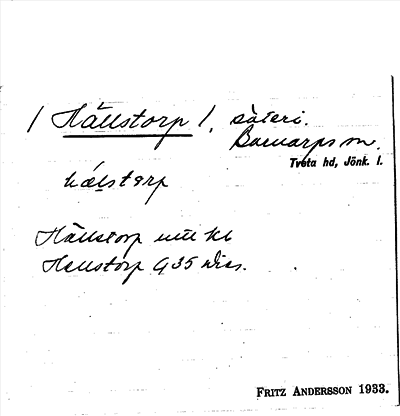 / Hällstorp /, säteri.
Barnarps sn.
Tveta hd, Jönk. l.
hælstorp
Hällstorp utt kb
Hellstorp G35 Diss.
FRITZ ANDERSSON 1933.